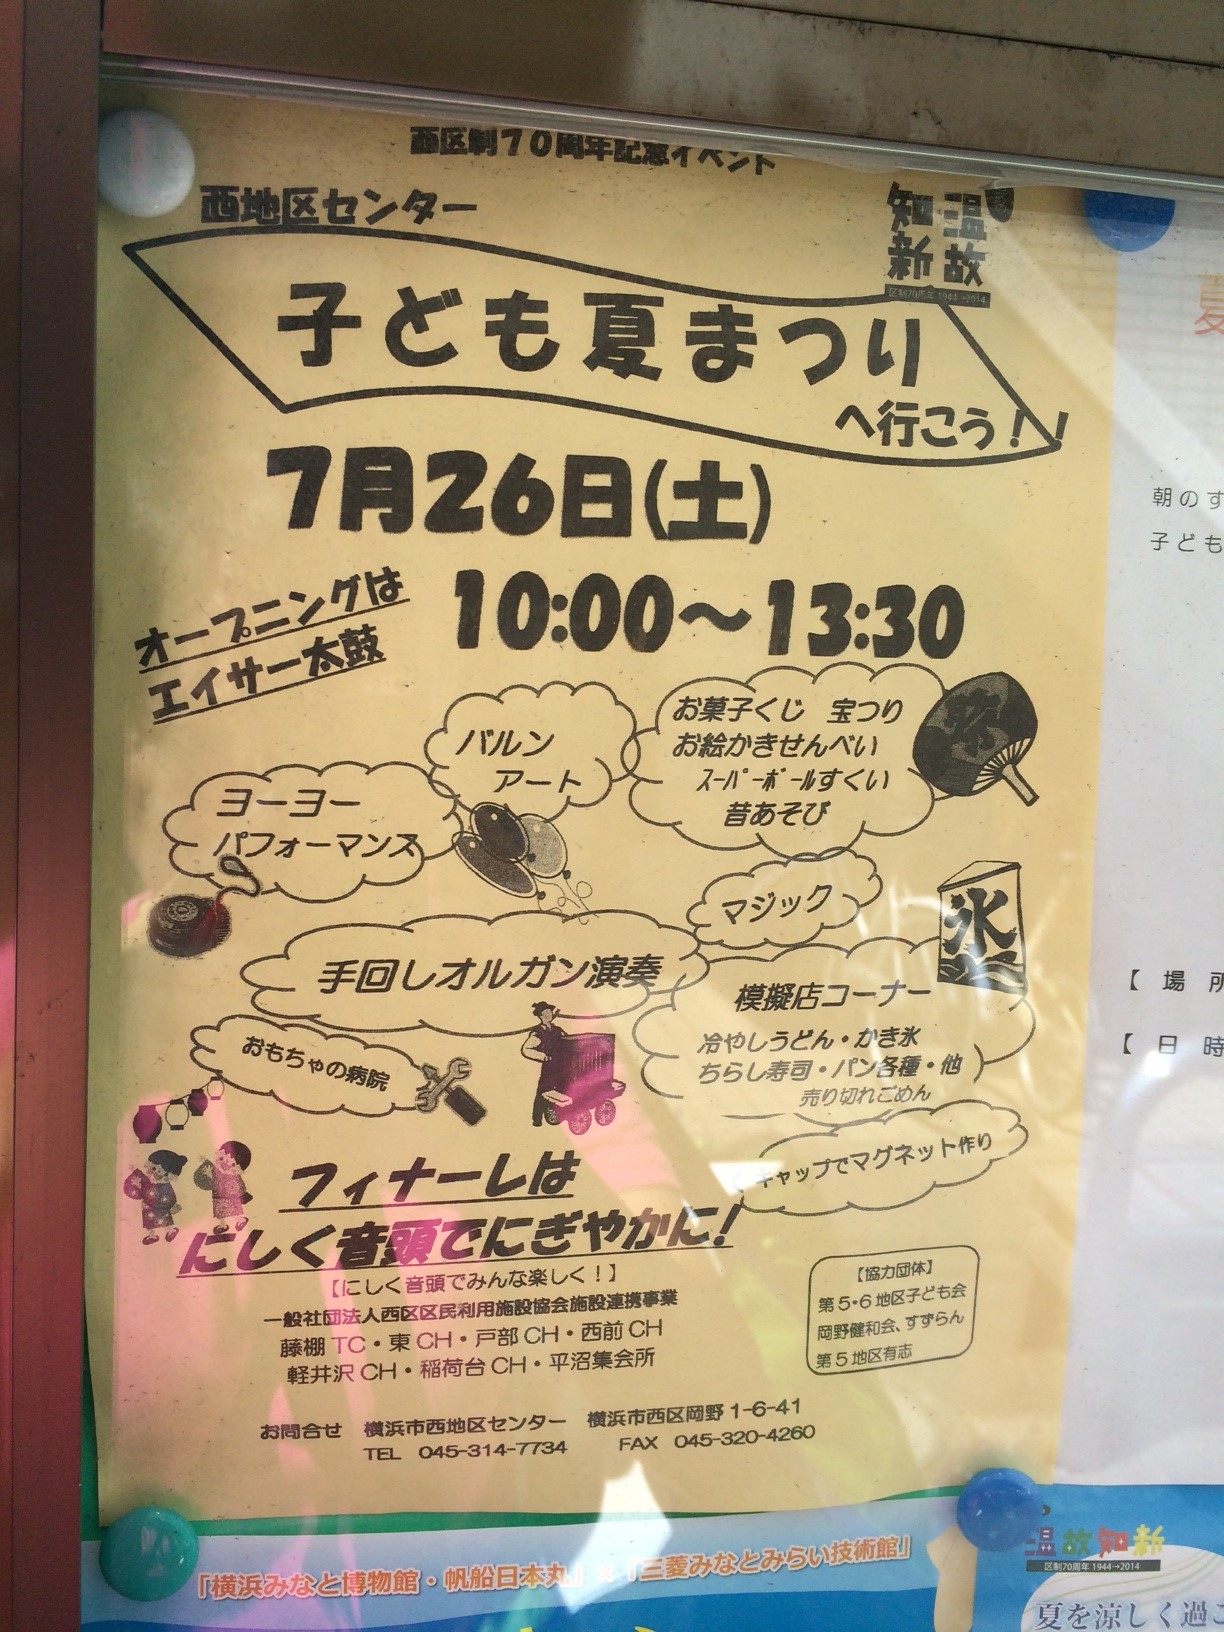 西区制70周年記念イベント
西地区センター
温故
知新
区制70周年 1944→2014
子ども夏まつり
へ行こう！！
7月26日(土)
10:00～13:30
オープニングは
エイサー太鼓
バルン
アート
お菓子くじ　宝つり
お絵かきせんべい
ｽｰﾊﾟｰﾎﾞｰﾙすくい
昔あそび
祭
ヨーヨー
パフォーマンス
マジック
氷
手回しオルガン演奏
模擬店コーナー
冷やしうどん・かき氷
ちらし寿司・パン各種・他
売り切れごめん
おもちゃの病院
キャップでマグネット作り
フィナーレは
にしく音頭でにぎやかに！
【にしく音頭でみんな楽しく！】
一般社団法人西区区民利用施設協会施設連携事業
藤棚 TC・東 CH・戸部 CH・西前 CH
軽井沢 CH・稲荷台 CH・平沼集会所
【協力団体】
第5・6地区子ども会
岡野健和会、すずらん
第5地区有志
お問合せ　横浜市西地区センター　横浜市西区岡野 1-6-41
TEL　045-314-7734　FAX　045-320-4260
夏
朝のす
子ども
【場所
【日時
「横浜みなと博物館・帆船日本丸」×『三菱みなとみらい技術館』
温故知新
区制70周年 1944→2014
夏を涼しく過ご